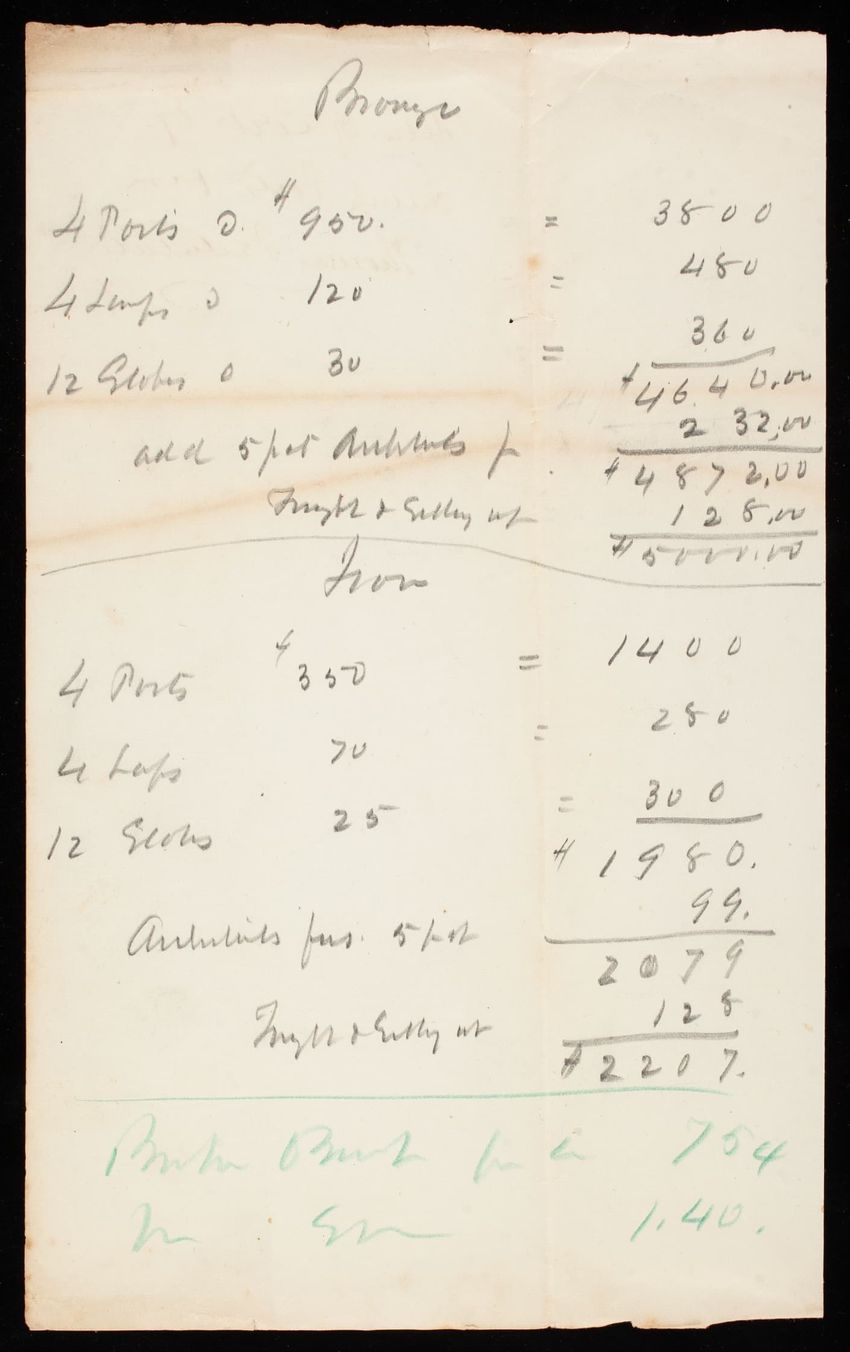 Bronze
4 Posts @ $950. = 3800
4 Lamps @ 120 = 480
12 Globes @ 30 = 360
$4640.00
add 5 pct Architects f 232.00
$4872.00
Freight & Setting up 128.00
$5000.00
Iron
4 Posts $350 = 1400
4 Laps 70 = 280
12 Globs 25 = 300
$1980.
Architects fees. 5 pct 99.
2079
Freight & Setting up 128
$2207.
754
1.40.